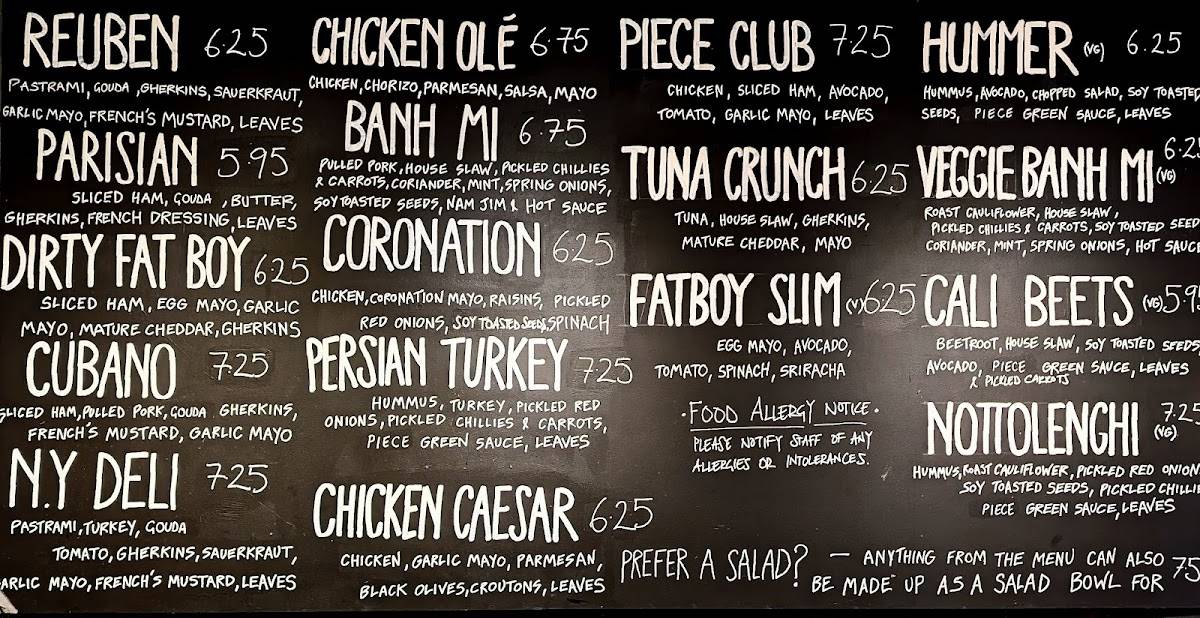 REUBEN 6.25
PASTRAMI, GOUDA, GHERKINS, SAUERKRAUT,
GARLIC MAYO, FRENCH'S MUSTARD, LEAVES
PARISIAN 5.95
SLICED HAM, GOUDA, BUTTER,
GHERKINS, FRENCH DRESSING, LEAVES
DIRTY FAT BOY 6.25
SLICED HAM, EGG MAYO, GARLIC
MAYO, MATURE CHEDDAR, GHERKINS
CUBANO 7.25
SLICED HAM, PULLED PORK, GOUDA GHERKINS,
FRENCH'S MUSTARD, GARLIC MAYO
N.Y DELI 7.25
PASTRAMI, TURKEY, GOUDA
TOMATO, GHERKINS, SAUERKRAUT,
GARLIC MAYO, FRENCH'S MUSTARD, LEAVES
CHICKEN OLÉ 6.75
CHICKEN, CHORIZO, PARMESAN, SALSA, MAYO
BANH MI 6.75
PULLED PORK, HOUSE SLAW, PICKLED CHILLIES
& CARROTS, CORIANDER, MINT, SPRING ONIONS,
SOY TOASTED SEEDS, NAM JIM & HOT SAUCE
CORONATION 6.25
CHICKEN, CORONATION MAYO, RAISINS, PICKLED
RED ONIONS, SOY TOASTED SEEDS, SPINACH
PERSIAN TURKEY 7.25
HUMMUS, TURKEY, PICKLED RED
ONIONS, PICKLED CHILLIES & CARROTS,
PIECE GREEN SAUCE, LEAVES
CHICKEN CAESAR 6.25
CHICKEN, GARLIC MAYO, PARMESAN,
BLACK OLIVES, CROUTONS, LEAVES
PIECE CLUB 7.25
CHICKEN, SLICED HAM, AVOCADO,
TOMATO, GARLIC MAYO, LEAVES
TUNA CRUNCH 6.25
TUNA, HOUSE SLAW, GHERKINS,
MATURE CHEDDAR, MAYO
FATBOY SLIM (V) 6.25
EGG MAYO, AVOCADO,
TOMATO, SPINACH, SRIRACHA
· FOOD ALLERGY NOTICE ·
PLEASE NOTIFY STAFF OF ANY
ALLERGIES OR INTOLERANCES.
HUMMER (VG) 6.25
HUMMUS, AVOCADO, CHOPPED SALAD, SOY TOASTED
SEEDS, PIECE GREEN SAUCE, LEAVES
VEGGIE BANH MI (VG) 6.25
ROAST CAULIFLOWER, HOUSE SLAW,
PICKLED CHILLIES & CARROTS, SOY TOASTED SEED
CORIANDER, MINT, SPRING ONIONS, HOT SAUCE
CALI BEETS (VG) 5.9
BEETROOT, HOUSE SLAW, SOY TOASTED SEEDS
AVOCADO, PIECE GREEN SAUCE, LEAVES
& PICKLED CARROTS
NOTTOLENGHI (VG) 7.25
HUMMUS, ROAST CAULIFLOWER, PICKLED RED ONION
SOY TOASTED SEEDS, PICKLED CHILLI
PIECE GREEN SAUCE, LEAVES
PREFER A SALAD? — ANYTHING FROM THE MENU CAN ALSO
BE MADE UP AS A SALAD BOWL FOR 7.5